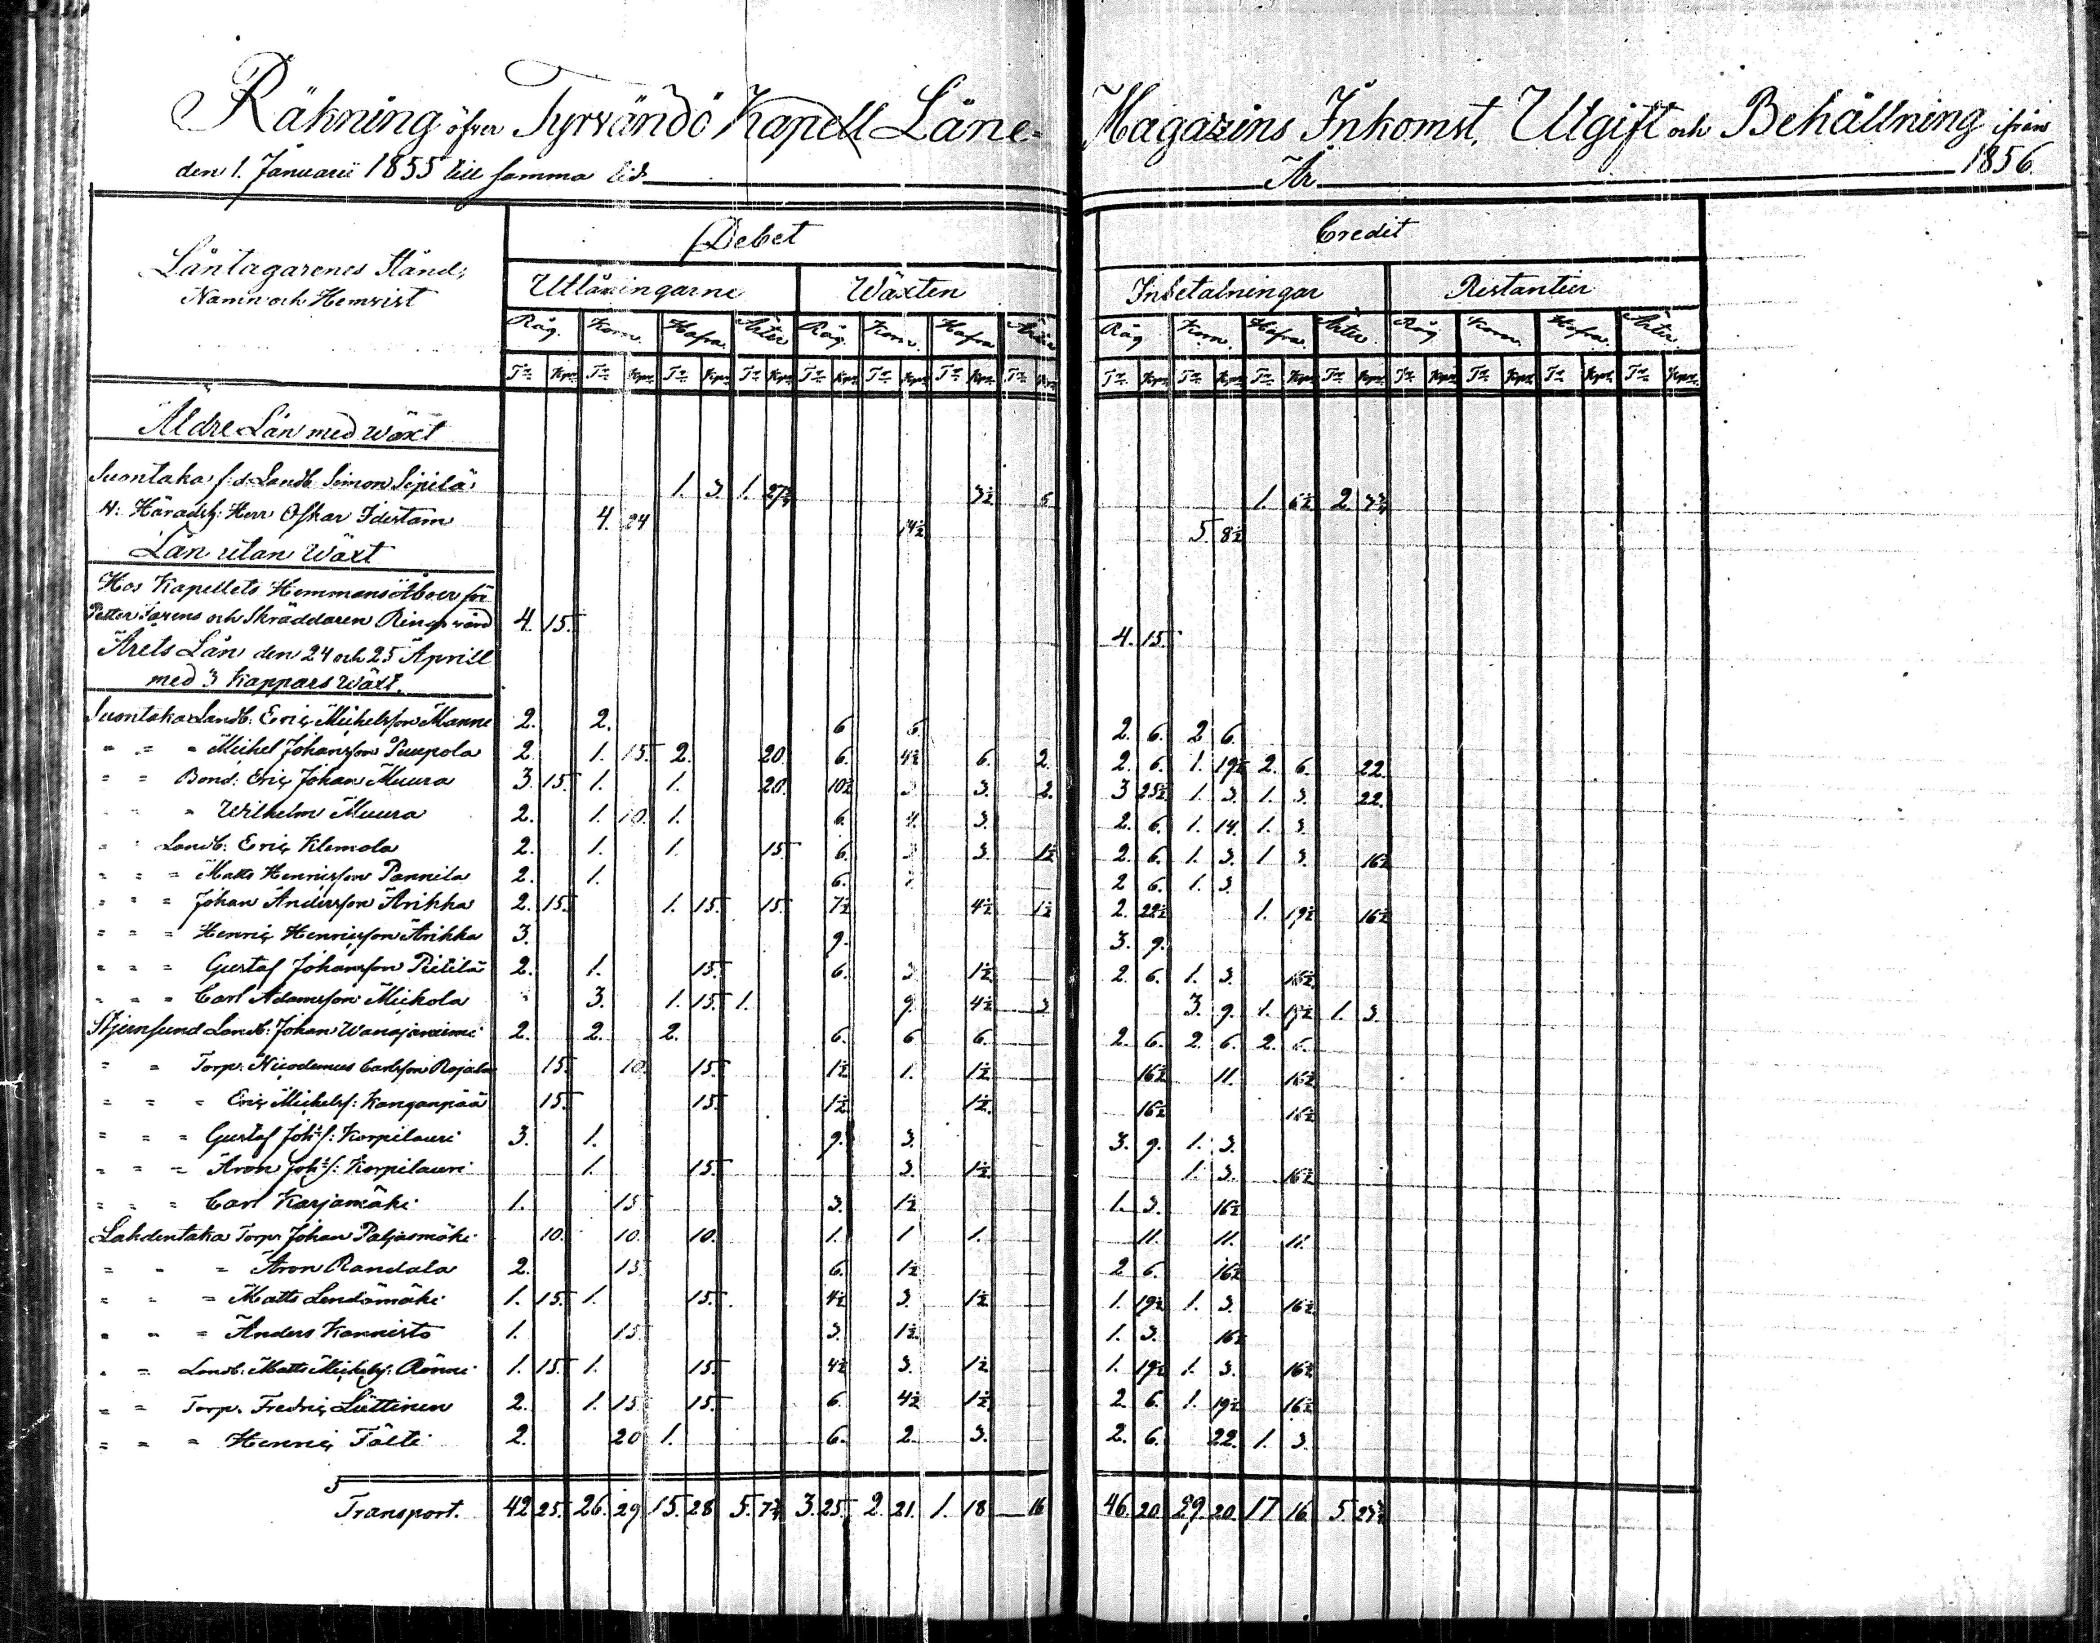 Räkning öfver Tyrvändö Kapell Låne- Magazins Inkomst, Utgift och Behållning ifrån
den 1. Januarii 1855 till samma tid År 1856.
Debet Credit
Låntagarenes Stånd,
Namn och Hemvist
Utlåningarne Wäxten Inbetalningar Restantier
Råg. Korn. Hafra. Ärter Råg. Korn. Hafra Ärter Råg Korn. Hafra. Ärter. Råg Korn. Hafra. Ärter.
Tr. Kpr. Tr. Kpr. Tr. Kpr. Tr. Kpr. Tr. Kpr. Tr. Kpr. Tr. Kpr. Tr. Kpr. Tr. Kpr. Tr. Kpr. Tr. Kpr. Tr. Kpr. Tr. Kpr. Tr. Kpr. Tr. Kpr. Tr. Kpr.
Äldre Lån med Wäxt
Suontaka f.d. Landb. Simon Sipilä 1. 3. 1. 3½ 1. 6½ 2.
H. Häradsh: Herr Oskar Idestam 4. 24 14½ 5. 8½
Lån utan Wäxt
Hos Kapellets Hemmans Åboer för
Petter och Skräddaren 4. 15. 4. 15.
Årets Lån den 24 och 25 Aprill
med 3 Kappars Wäxt.
Suontaka Landb: Eric Michelsson Manne 2. 2. 6 6. 2. 6. 2 6.
" " " Michel Johansson Puupola 2. 1. 15. 2. 20. 6. 4½ 6. 2. 2. 6. 1. 19½ 2. 6. 22.
" " Bond. Eric Johan Muura 3. 15. 1. 1. 20. 10½ 3 3. 2. 3 25½ 1. 3. 1. 3. 22.
" " " Wilhelm Muura 2. 1. 10. 1. 6. 4. 3. 2. 6. 1. 14. 1. 3.
" " Landb: Eric Klemola 2. 1. 1. 15 6. 3 3. 1½ 2. 6. 1. 3. 1 3. 16½
" " " Matts Henricsson Pannila 2. 1. 6. 3. 2 6. 1. 3.
" " " Johan Andersson Arikka 2. 15. 1. 15. 15. 7½ 4½ 1½ 2. 22½ 1. 19½ 16½
" " " Henric Henricsson Arikka 3. 9. 3. 9.
" " " Gustaf Johansson Pietilä 2. 1. 15. 6. 3 1½ 2. 6. 1. 3. 16½
" " " Carl Adamsson Mickola " 3. 1. 15. 1. 9. 4½ 3 3. 9. 1. 19½ 1. 3.
Stjernsund Landb: Johan Wanajaniemi 2. 2. 2. 6. 6 6. 2. 6. 2. 6. 2. 6.
" " Torp. Nicodemus Carlsson Rajala 15. 10. 15. 1½ 1. 1½ 16½ 11. 16½
" " " Eric Michelss: Kanganpää 15. 15. 1½ 1½. 16½ 16½
" " " Gustaf Joh:s: Korpilauri 3. 1. 9. 3. 3. 9. 1. 3.
" " " Aron Joh:s: Korpilauri 1. 15. 3. 1½ 1. 3. 16½
" " " Carl Karjamäki 1. 15 3. 1½ 1. 3. 16½
Lahdentaka Torp. Johan Paljasmäki 10. 10. 10. 1. 1 1. 11. 11. 11.
" " " Aron Randala 2. 15. 6. 1½ 2 6. 16½
" " " Matts Lendämäki 1. 15. 1. 15. 4½ 3. 1½ 1. 19½ 1. 3. 16½
" " " Anders Kannisto 1. 15. 3. 1½ 1. 3. 16½
" " Landb: Matts Michelss: Rönni 1. 15. 1. 15. 4½ 3. 1½ 1. 19½ 1. 3. 16½
" " Torp. Fredric Lüttinen 2. 1. 15 15. 6. 4½ 1½ 2. 6. 1. 19½ 16½
" " " Henric Tälti 2. 20 1. 6. 2. 3. 2. 6. 22. 1. 3.
Transport. 42 25. 26. 29 15. 28 5. 7¾ 3. 25. 2. 21. 1. 18 — 16 46. 20. 29. 20. 17 16. 5. 23¾